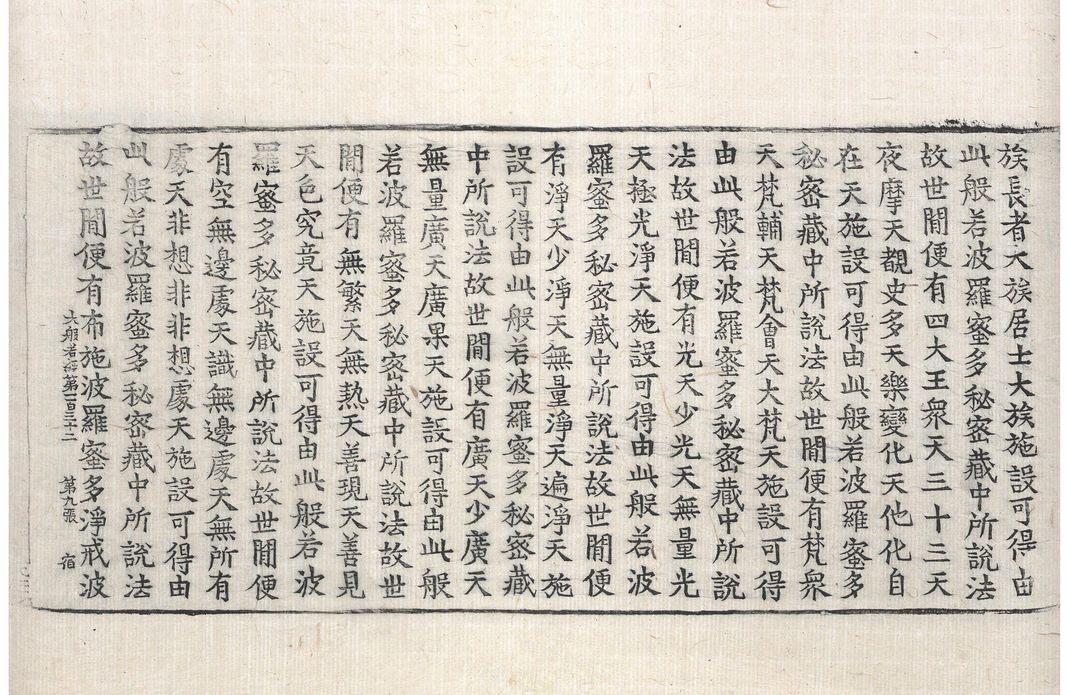 族長者大族居士大族施設可得由
此般若波羅蜜多秘密藏中所說法
故世間便有四大王衆天三十三天
夜摩天覩史多天樂變化天他化自
在天施設可得由此般若波羅蜜多
秘密藏中所說法故世間便有梵衆
天梵輔天梵會天大梵天施設可得
由此般若波羅蜜多秘密藏中所說
法故世間便有光天少光天無量光
天極光淨天施設可得由此般若波
羅蜜多秘密藏中所說法故世間便
有淨天少淨天無量淨天遍淨天施
設可得由此般若波羅蜜多秘密藏
中所說法故世間便有廣天少廣天
無量廣天廣果天施設可得由此般
若波羅蜜多秘密藏中所說法故世
間便有無繁天無熱天善現天善見
天色究竟天施設可得由此般若波
羅蜜多秘密藏中所說法故世間便
有空無邊處天識無邊處天無所有
處天非想非非想處天施設可得由
此般若波羅蜜多秘密藏中所說法
故世間便有布施波羅蜜多淨戒波
大般若經第一百三十二 第九張 宿